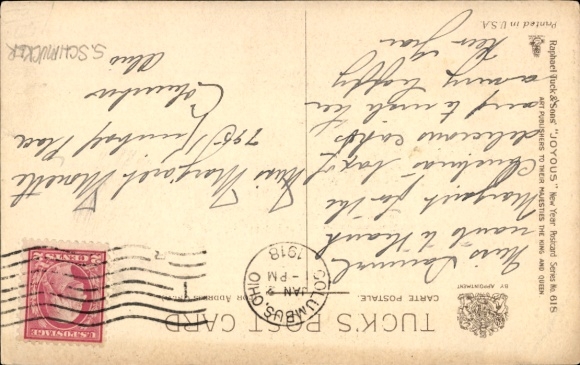 TUCK'S POST CARD
CARTE POSTALE
(FOR ADDRESS ONLY)
BY APPOINTMENT
Raphael Tuck & Sons' "JOYOUS" New Year Postcard Series No. 615
ART PUBLISHERS TO THEIR MAJESTIES THE KING AND QUEEN
Printed in U.S.A.
COLUMBUS, OHIO
JAN 2
1-PM
1918
U.S. POSTAGE
2 CENTS 2
Miss
wants to thank
Margaret for the
Christmas box of
delicious cakes
and to wish her
a very happy
New Year
Miss Margaret
795 Kimball Place
Columbus
Ohio
S. SCHMUCKER